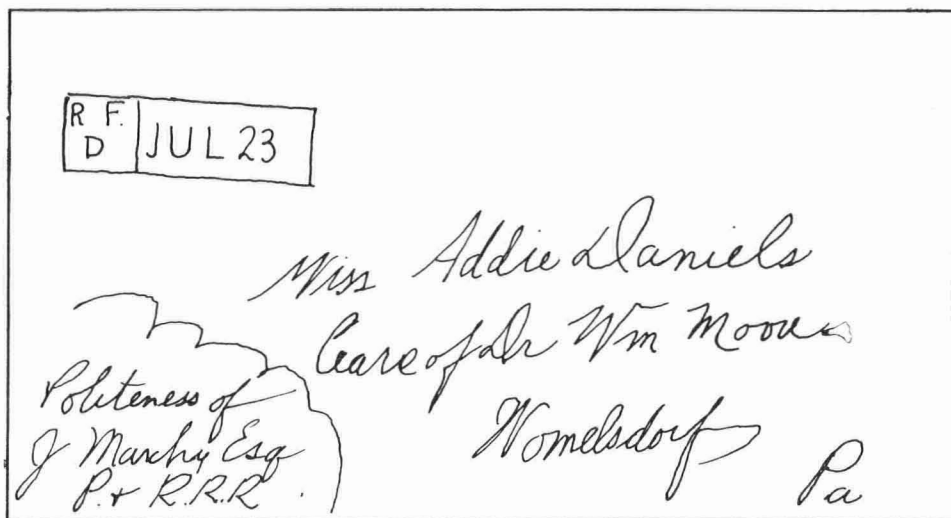 R F.
D
JUL 23
Miss Addie Daniels
Care of Dr Wm Moore
Womelsdorf
Pa
Politeness of
J Esq
P. & R.R.R.